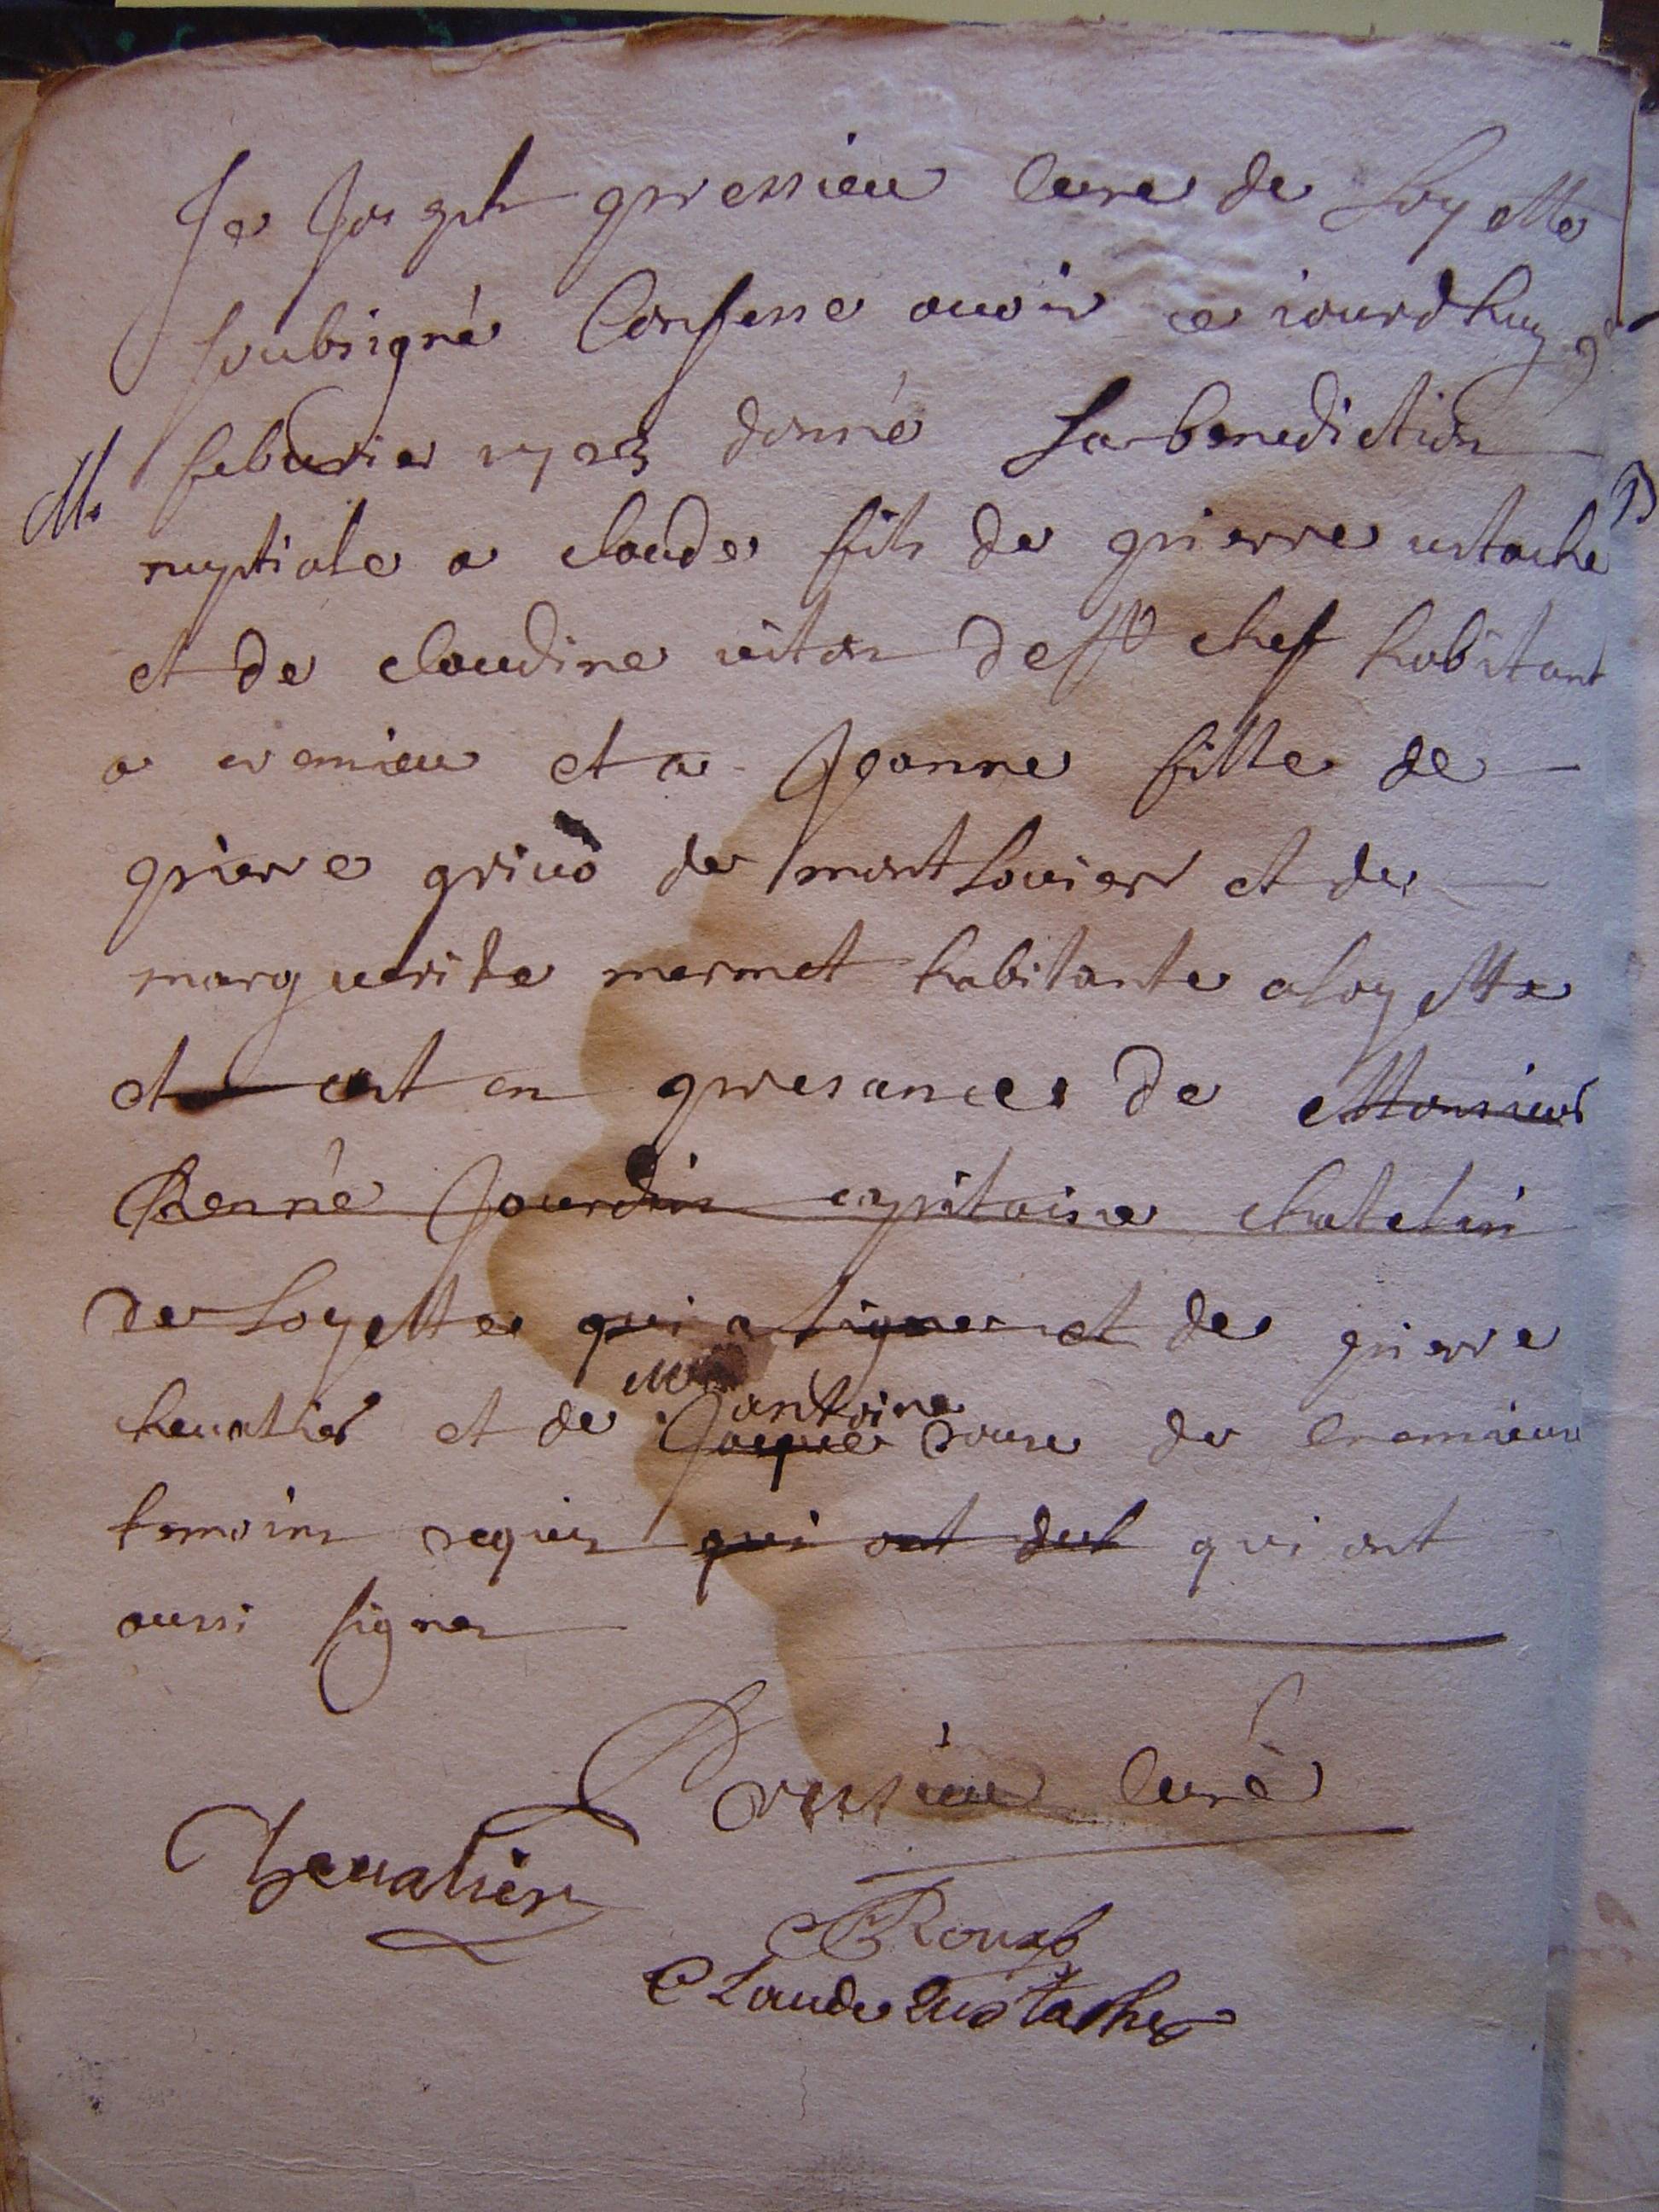 Je Joseph pressieu Cure de Loyette
soubsigné Confesse avoir ce iourdhuy 9e
feburier 1723 donné La benediction
M.
nuptiale a claude fils de pierre ustache
et de claudine viton de st chef habitant
a cremieu et a Jeanne fille de
pierre grivo de montLovier et de
marguerite mermet habitante a loyette
et cet en presances de Monsieur
Renné Jourdin capitaine chatelain
de Loyette qui a signer et de pierre
chevallier et de Jacque Mre antoine roux de Cremieux
temoins requis qui ont det qui ont
aussi signer
Pressieu Curé
Chevalier
Roux
CLaude Eustache